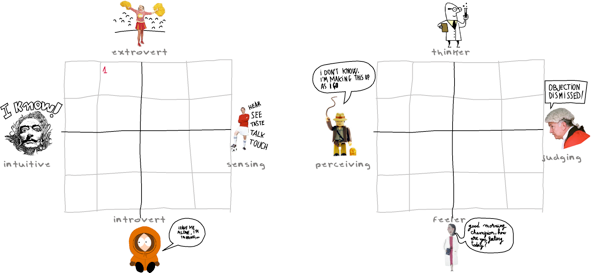 extrovert
1
I KNOW!
intuitive
HEAR
SEE
TASTE
TALK
TOUCH
sensing
introvert
LEAVE ME
ALONE, I'M
thinker
I DON'T KNOW.
I'M MAKING THIS UP
AS I GO
perceiving
OBJECTION
DISMISSED!
judging
feeler
good morning
champion, how
are you feeling
today?